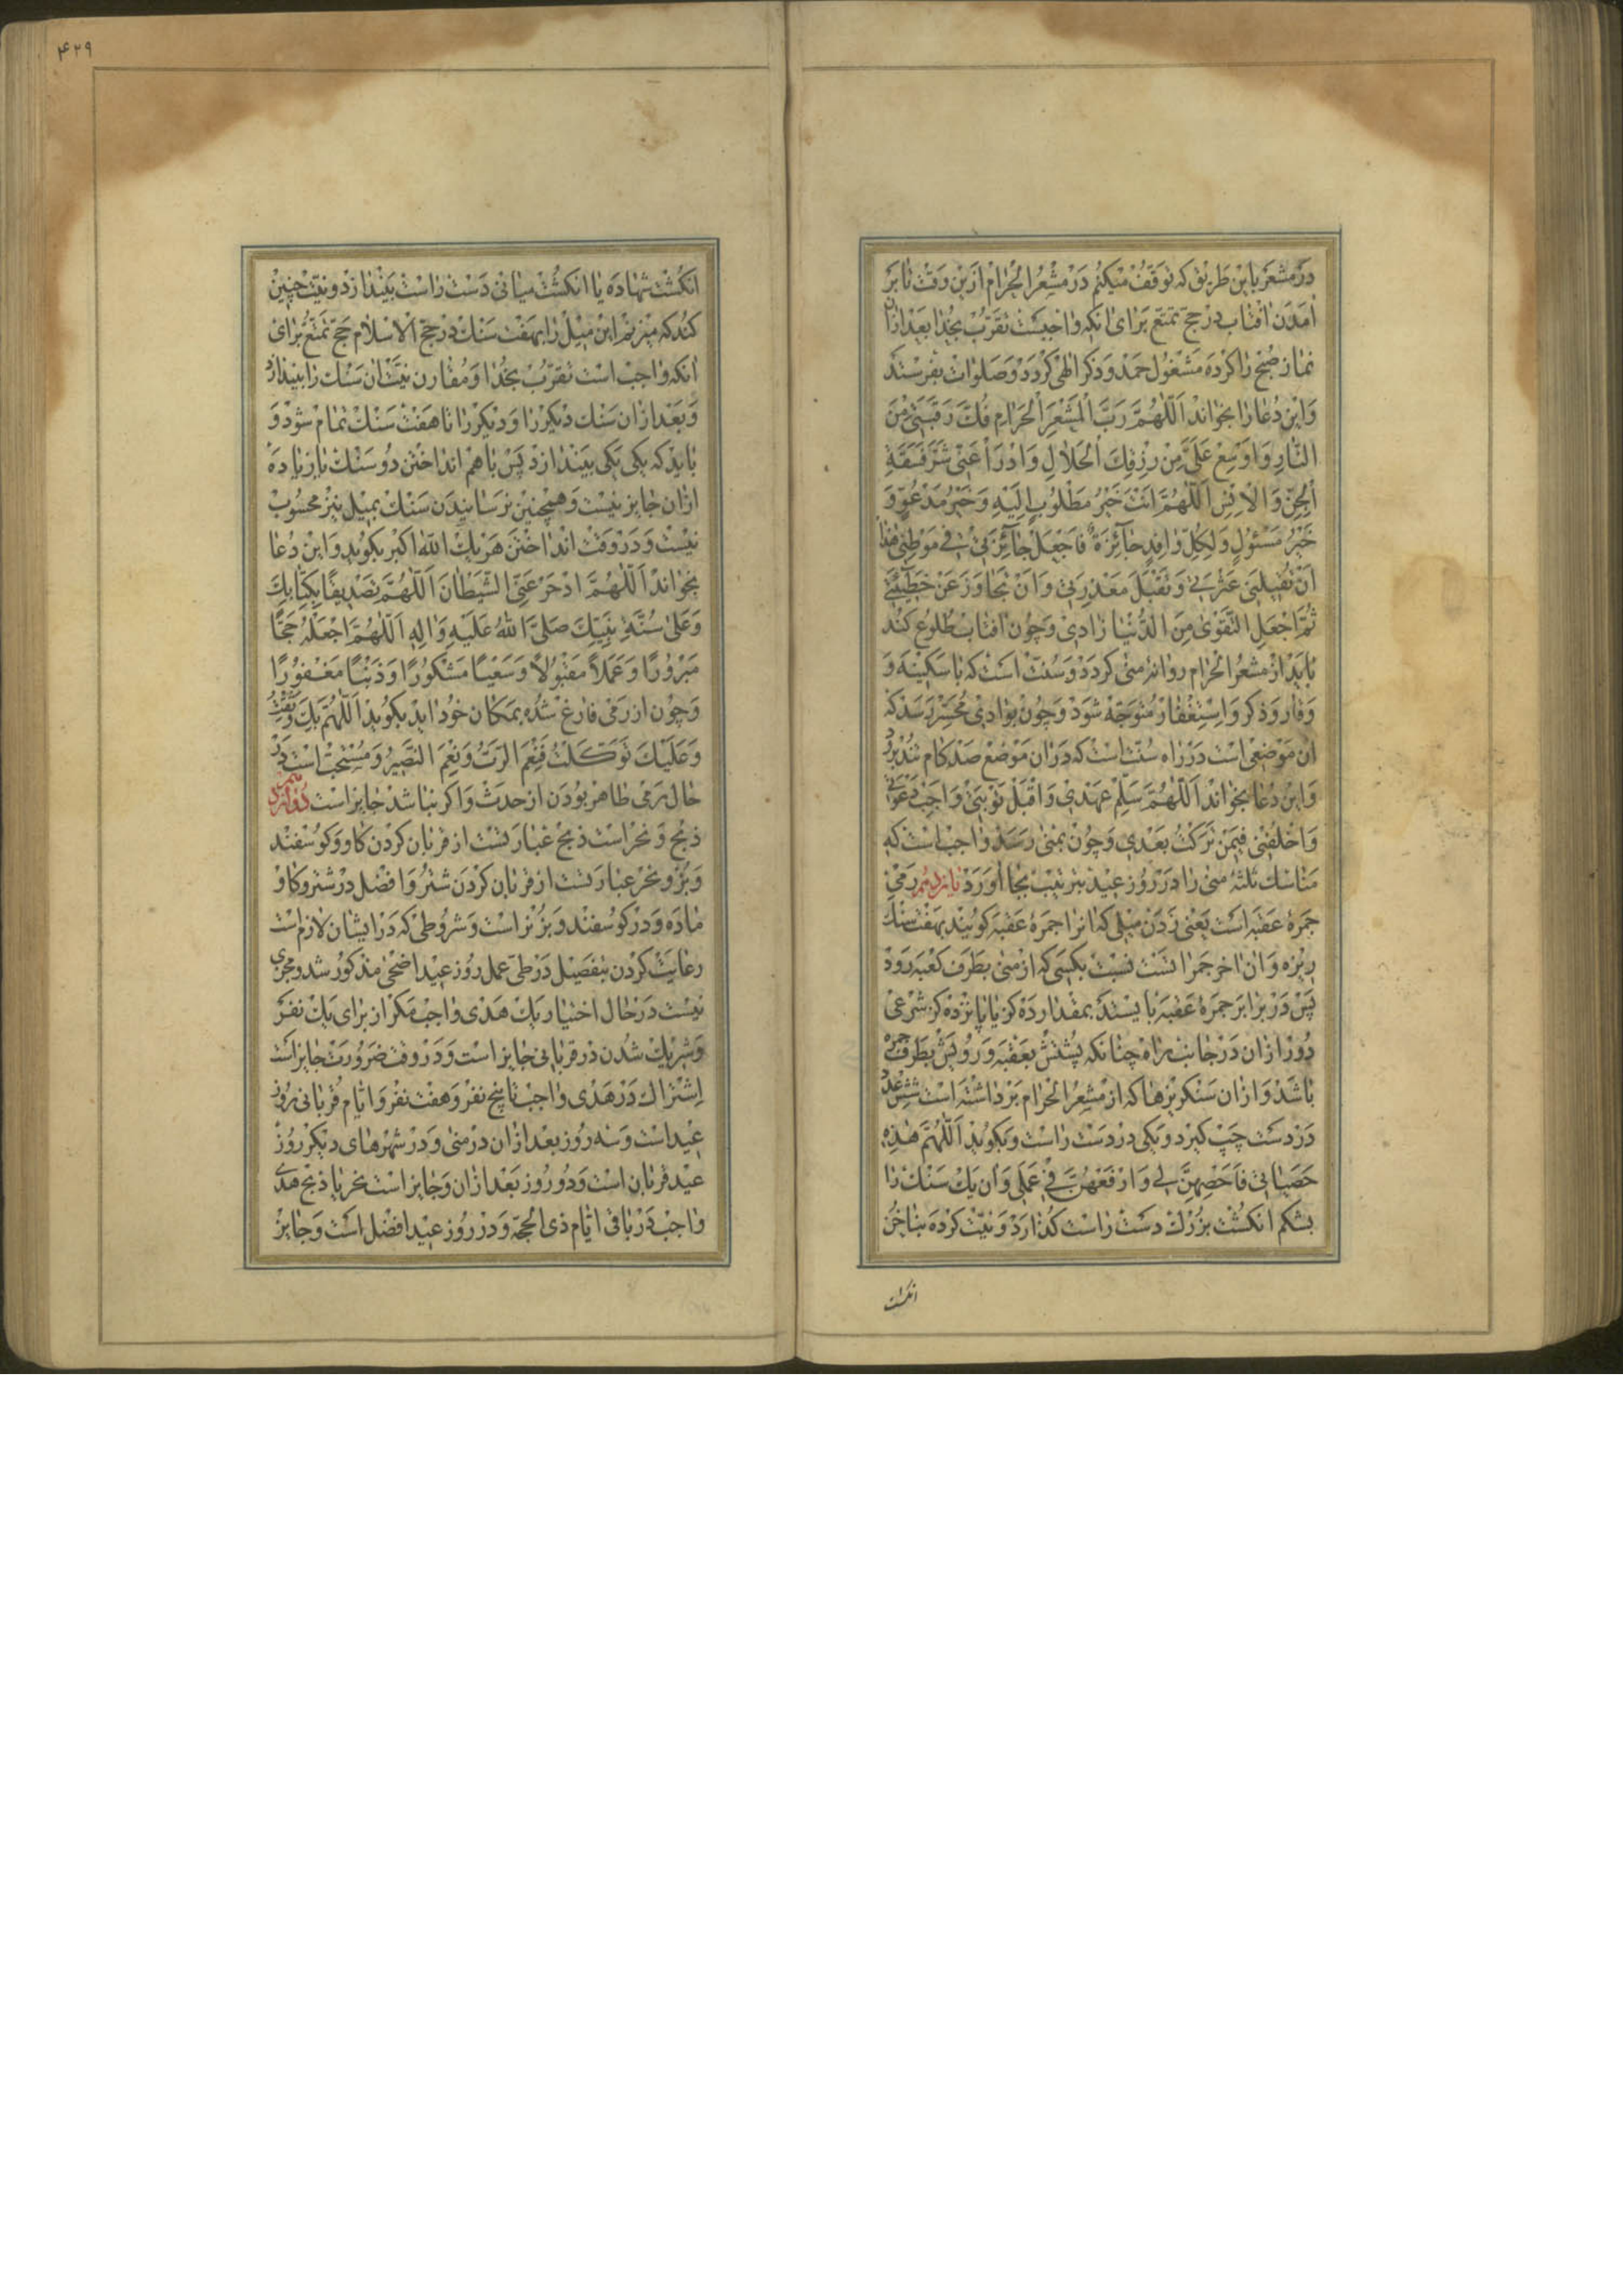 در مشعر باین طریق که توقف میکنم در مشعر الحرام ازین وقت تا بر
امدن افتاب در حج تمتع برای انکه واجبست تقرب بخدا بعد ازان
نماز صبح را کرده مشغول حمد و ذکر الهی کردد و صلوات بفرستد
و این دعا را بخواند اَللّٰهُمَّ رَبَّ الْمَشْعَرِ الْحَرامِ فُكَّ رَقَبَتي مِنَ
النّارِ وَاَوْسِعْ عَلَيَّ مِنْ رِزْقِكَ الْحَلالِ وَادْرَأْ عَنّي شَرَّ فَسَقَةِ
الْجِنِّ وَالْاِنْسِ اَللّٰهُمَّ اَنْتَ خَيْرُ مَطْلُوبٍ اِلَيْهِ وَخَيْرُ مَدْعُوٍّ وَ
خَيْرُ مَسْئُولٍ وَلِكُلِّ وافِدٍ جآئِزَةٌ فَاجْعَلْ جآئِزَتي في مَوْطِني هٰذا
اَنْ تُقيلَني عَثْرَتي وَتَقْبَلَ مَعْذِرَتي وَاَنْ تَجاوَزَ عَنْ خَطيٓئَتي
ثُمَّ اجْعَلِ التَّقْوٰى مِنَ الدُّنْيا زادي و چون افتاب طلوع کند
باید از مشعر الحرام روانهٔ منی کردد و سنت است که با سکینه و
وقار و ذکر و استغفار متوجه شود و چون بوادی محسر رسد که
ان موضعی است در راه سنت است که دران موضع صد کام تند برود
و این دعا بخواند اَللّٰهُمَّ سَلِّمْ عَهْدي وَاقْبَلْ تَوْبَتي وَاَجِبْ دَعْوَتي
وَاخْلُفْني فيمَنْ تَرَكْتُ بَعْدي و چون بمنی رسد واجب است که
مناسک ثلثهٔ منی را در روز عید بترتیب بجا اورد یازدهم رمی
جمرهٔ عقبه است یعنی زدن میلی که انرا جمرهٔ عقبه کویند بهفت سنک
ریزه و ان اخر جمراتست نسبت بکسی که از منی بطرف کعبه رود
پس در برابر جمرهٔ عقبه بایستد بمقدار ده کز یا پانزده کز شرعی
دور ازان در جانب راه چنانکه پشتش بعقبه و رویش بطرف جمره
باشد و ازان سنکریزها که از مشعر الحرام برداشته است شش عدد
در دست چپ کیرد و یکی در دست راست و بکوید اَللّٰهُمَّ هٰذِهِ
حَصَياتي فَاَحْصِهِنَّ لي وَارْفَعْهُنَّ في عَمَلي و ان یک سنک را
بشکم انکشت بزرک دست راست کذارد و نیت کرده بناخن
انکشت
۴۲۹
انکشت شهاده یا انکشت میانی دست راست بیندازد و نیت چنین
کند که میزنم این میل را بهفت سنک در حج الاسلام حج تمتع برای
انکه واجب است تقرب بخدا و مقارن نیت ان سنک را بیندازد
و بعد ازان سنک دیکر را و دیکر را تا هفت سنک تمام شود و
باید که یکی یکی بیندازد پس با هم انداختن دو سنک یا زیاده
ازان جایز نیست و همچنین نرسانیدن سنک بمیل نیز محسوب
نیست و در وقت انداختن هر یک الله اکبر بکوید و این دعا
بخواند اَللّٰهُمَّ ادْحَرْ عَنّي الشَّيْطانَ اَللّٰهُمَّ تَصْديقًا بِكِتابِكَ
وَعَلىٰ سُنَّةِ نَبِيِّكَ صَلَّى اللهُ عَلَيْهِ وَاٰلِهِ اَللّٰهُمَّ اجْعَلْهُ حَجًّا
مَبْرُورًا وَعَمَلاً مَقْبُولاً وَسَعْيًا مَشْكُورًا وَذَنْبًا مَغْفُورًا
و چون از رمی فارغ شده بمکان خود اید بکوید اَللّٰهُمَّ بِكَ وَثِقْتُ
وَعَلَيْكَ تَوَكَّلْتُ فَنِعْمَ الرَّبُّ وَنِعْمَ النَّصيرُ و مستحب است در
حال رمی طاهر بودن از حدث و اکر نباشد جایز است دوازدهم
ذبح و نحر است ذبح عبارتست از قربان کردن کاو و کوسفند
و بز و نحر عبارتست از قربان کردن شتر و افضل در شتر و کاو
ماده و در کوسفند و بز نر است و شروطی که در ایشان لازم است
رعایت کردن بتفصیل در طی عمل روز عید اضحی مذکور شد و مجزی
نیست در حال اختیار یک هدی واجب مکر از برای یک نفر
و شریک شدن در قربانی جایز است و در وقت ضرورت جایز است
اشتراک در هدی واجب تا پنج نفر و هفت نفر و ایام قربانی روز
عید است و سه روز بعد ازان در منی و در شهرهای دیکر روز
عید قربان است و دو روز بعد ازان و جایز است نحر یا ذبح هدی
واجب در باقی ایام ذی الحجه و در روز عید افضل است و جایز